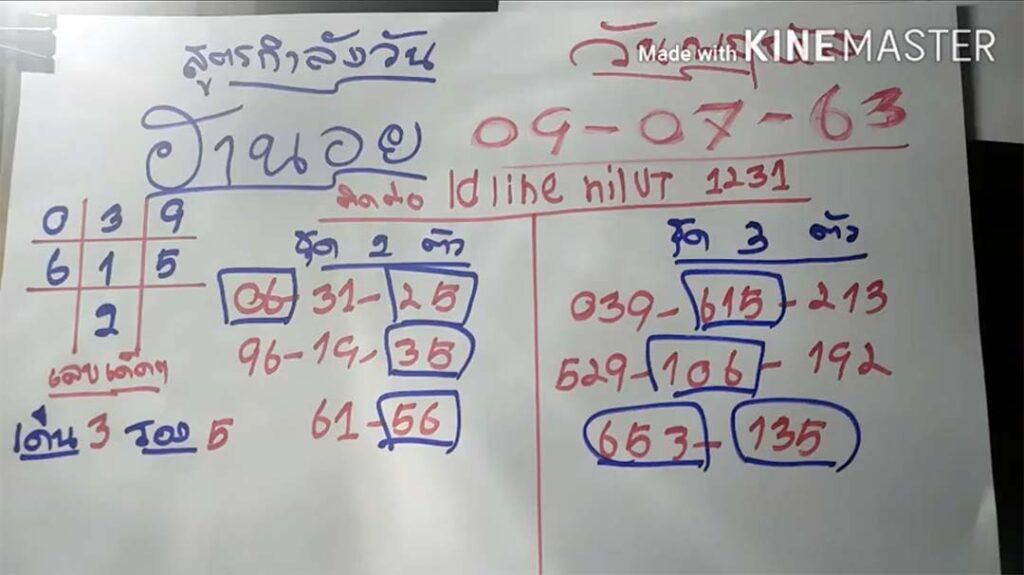 สูตรกำลังวัน
Made with KINEMASTER
ฮานอย 09-07-63
ติดต่อ Id line nilUT 1231
0 3 9
6 1 5
2
เลขเด็ดๆ
เด่น 3 รอง 5
ชุด 2 ตัว
06-31-25
96-19-35
61-56
ชุด 3 ตัว
039-615-213
529-106-192
653-135